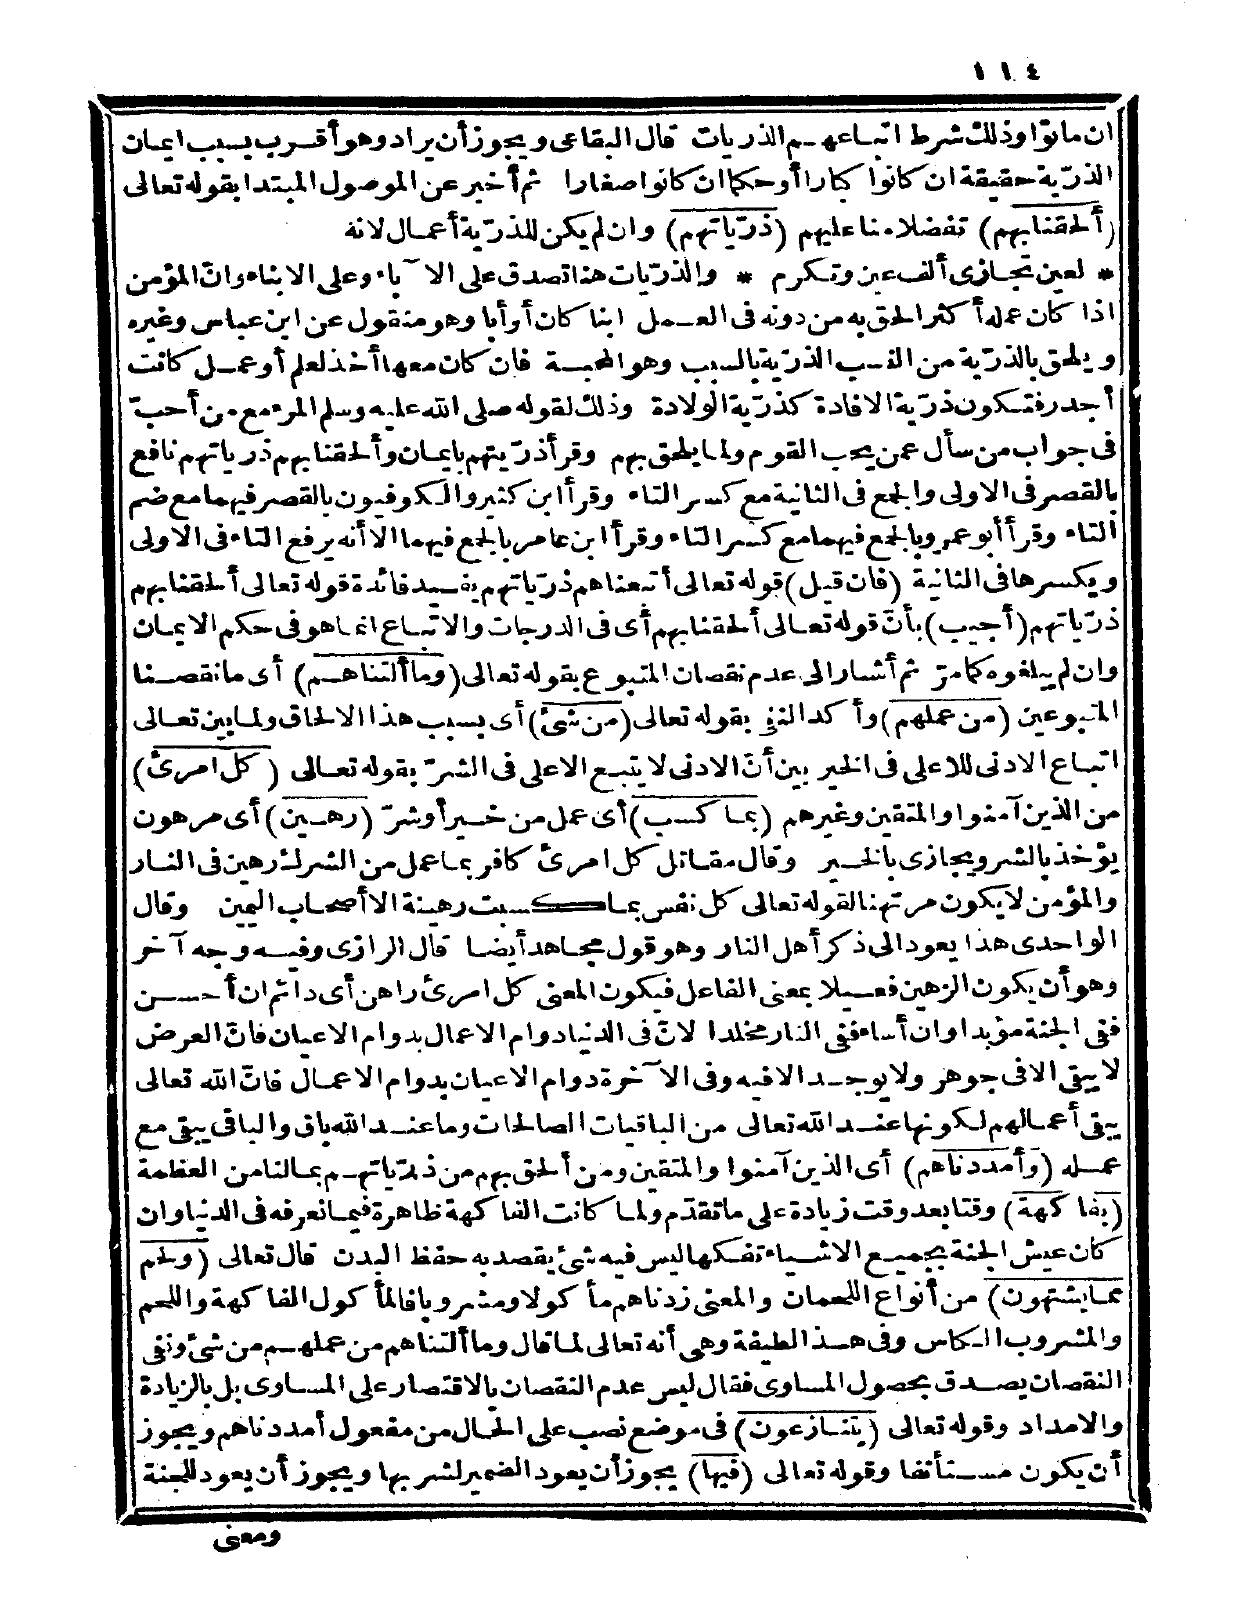 ١١٤
ان ماتوا وذلك شرط اتباعهم الذريات قال البقاعى ويجوز أن يراد وهو أقرب بسبب ايمان
الذرّية حقيقة ان كانوا كبارا أو حكما ان كانوا صغارا ثم أخبر عن الموصول المبتدا بقوله تعالى
(ألحقنا بهم) تفضلا منا عليهم (ذرّياتهم) وان لم يكن للذرّية أعمال لانه
* لعين تجازى ألف عين وتكرم * والذرّيات هنا تصدق على الآباء وعلى الابناء وانّ المؤمن
اذا كان عمله أكثر الحق به من دونه فى العمل ابنا كان أو أبا وهو منقول عن ابن عباس وغيره
ويلحق بالذرّية من النسب الذرّية بالسبب وهو المحبة فان كان معها أخذ لعلم أو عمل كانت
أجدر فتكون ذرّية الافادة كذرّية الولادة وذلك لقوله صلى الله عليه وسلم المرء مع من أحبّ
فى جواب من سأل عمن يحب القوم ولما يلحق بهم وقرأ ذرّيتهم بايمان وألحقنا بهم ذرياتهم نافع
بالقصر فى الاولى والجمع فى الثانية مع كسر التاء وقرأ ابن كثير والكوفيون بالقصر فيهما مع ضم
التاء وقرأ أبو عمرو بالجمع فيهما مع كسر التاء وقرأ ابن عامر بالجمع فيهما الا أنه يرفع التاء فى الاولى
ويكسرها فى الثانية (فان قيل) قوله تعالى أتبعناهم ذرّياتهم يفيد فائدة قوله تعالى ألحقنا بهم
ذرّياتهم (أجيب) بأنّ قوله تعالى ألحقنا بهم أى فى الدرجات والاتباع انما هو فى حكم الايمان
وان لم يبلغوه كما مرّ ثم أشار الى عدم نقصان المتبوع بقوله تعالى (وما ألتناهم) أى ما نقصنا
المتبوعين (من عملهم) وأكد النفى بقوله تعالى (من شئ) أى بسبب هذا الالحاق ولما بين تعالى
اتباع الادنى للاعلى فى الخير بين أنّ الادنى لا يتبع الاعلى فى الشرّ بقوله تعالى (كل امرئ)
من الذين آمنوا والمتقين وغيرهم (بما كسب) أى عمل من خير أو شرّ (رهين) أى مرهون
يؤخذ بالشر ويجازى بالخير وقال مقاتل كل امرئ كافر بما عمل من الشرك رهين فى النار
والمؤمن لا يكون مرتهنا لقوله تعالى كل نفس بما كسبت رهينة الا أصحاب اليمين وقال
الواحدى هذا يعود الى ذكر أهل النار وهو قول مجاهد أيضا قال الرازى وفيه وجه آخر
وهو أن يكون الرهين فعيلا بمعنى الفاعل فيكون المعنى كل امرئ راهن أى دائم ان أحسن
ففى الجنة مؤبدا وان أساء ففى النار مخلدا لانّ فى الدنيا دوام الاعمال بدوام الاعيان فانّ العرض
لا يبقى الا فى جوهر ولا يوجد الا فيه وفى الآخرة دوام الاعيان بدوام الاعمال فانّ الله تعالى
يبقى أعمالهم لكونها عند الله تعالى من الباقيات الصالحات وما عند الله باق والباقى يبقى مع
عمله (وأمددناهم) أى الذين آمنوا والمتقين ومن ألحق بهم من ذرّياتهم بما لنا من العظمة
(بفاكهة) وقتا بعد وقت زيادة على ما تقدّم ولما كانت الفاكهة ظاهرة فيما نعرفه فى الدنيا وان
كان عيش الجنة بجميع الاشياء تفكها ليس فيه شئ يقصد به حفظ البدن قال تعالى (ولحم
مما يشتهون) من أنواع اللحمان والمعنى زدناهم مأكولا ومشروبا فالمأكول الفاكهة واللحم
والمشروب الكاس وفى هذا لطيفة وهى أنه تعالى لما قال وما ألتناهم من عملهم من شئ ونفى
النقصان يصدق بحصول المساوى فقال ليس عدم النقصان بالاقتصار على المساوى بل بالزيادة
والامداد وقوله تعالى (يتنازعون) فى موضع نصب على الحال من مفعول أمددناهم ويجوز
أن يكون مستأنفا وقوله تعالى (فيها) يجوز أن يعود الضمير لشربها ويجوز أن يعود للجنة
ومعنى